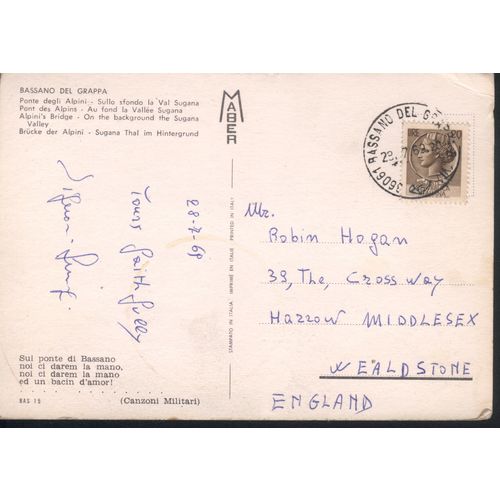 BASSANO DEL GRAPPA
Ponte degli Alpini - Sullo sfondo la Val Sugana
Pont des Alpins - Au fond la Vallée Sugana
Alpini's Bridge - On the background the Sugana
Valley
Brücke der Alpini - Sugana Thal im Hintergrund
MABER
STAMPATO IN ITALIA IMPRIMÉ EN ITALIE PRINTED IN ITALY
36061 BASSANO DEL
20
28-7-69
Yours Faithfully
Mr.
Robin Hogan
39, The, Crossway
Harrow MIDDLESEX
WEALDSTONE
ENGLAND
Sul ponte di Bassano
noi ci darem la mano,
noi ci darem la mano
ed un bacin d'amor!
(Canzoni Militari)
BAS 15